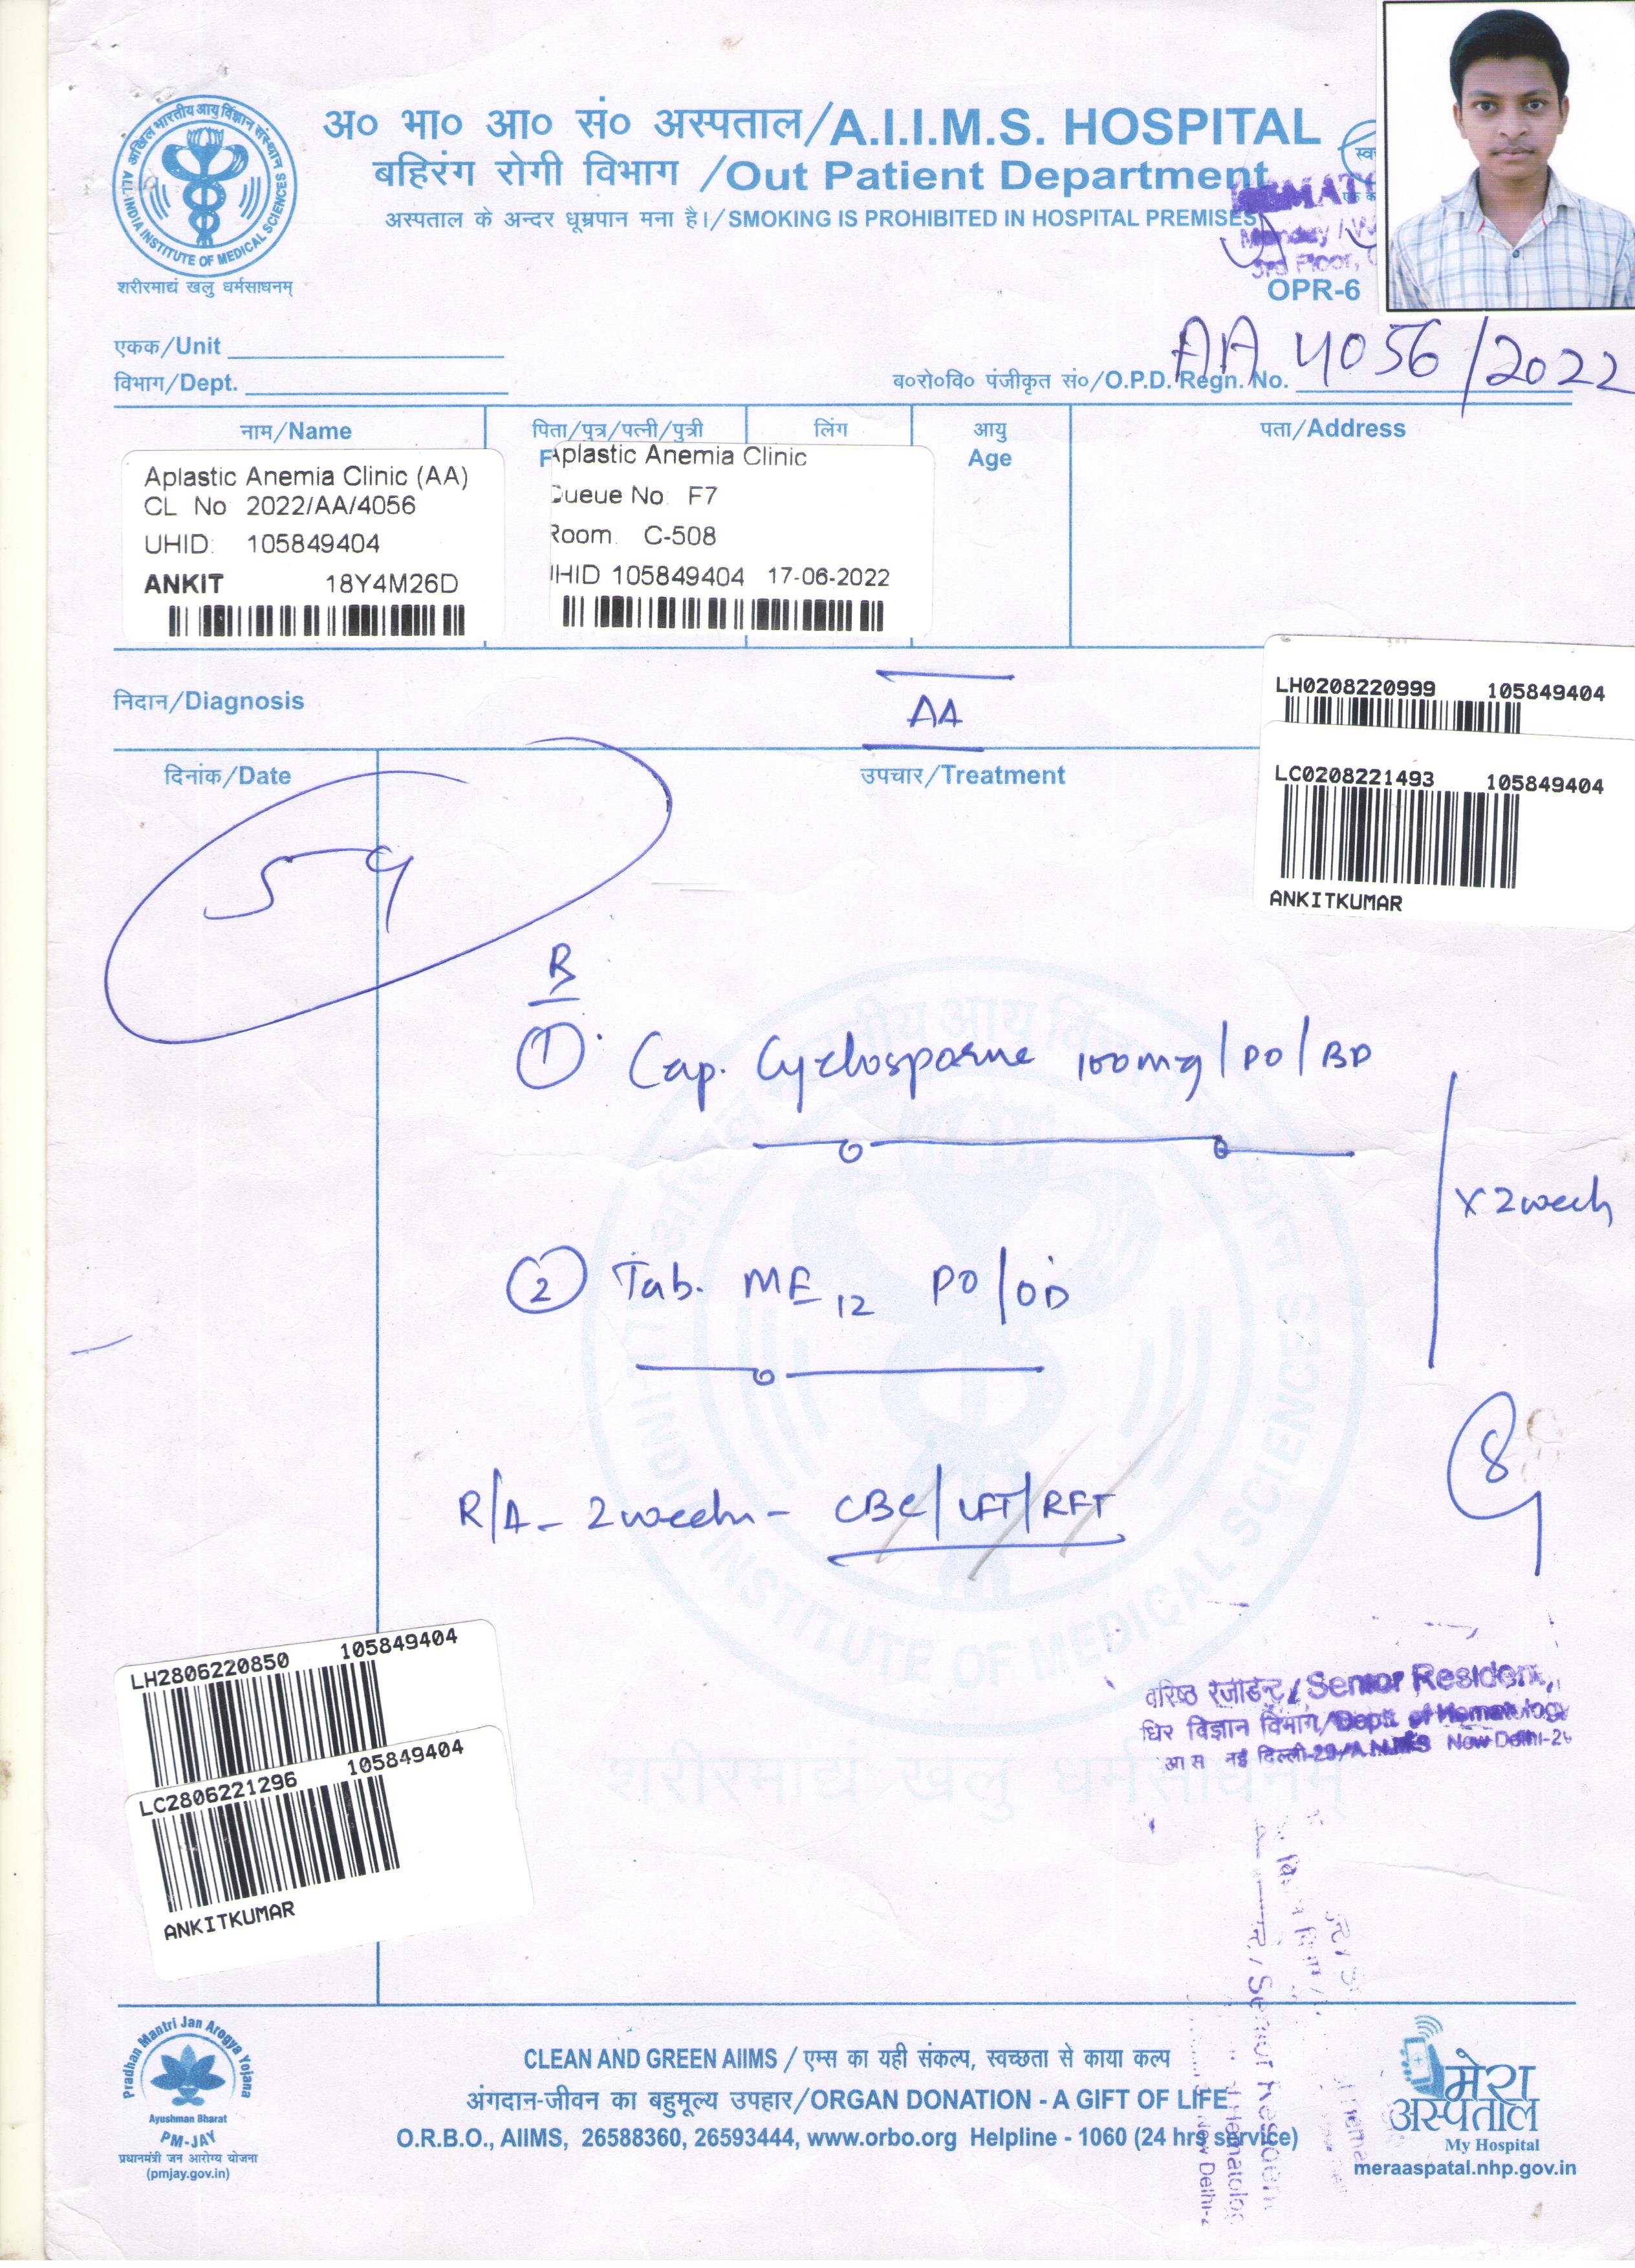 अ० भा० आ० सं० अस्पताल/A.I.I.M.S. HOSPITAL
बहिरंग रोगी विभाग /Out Patient Department
अस्पताल के अन्दर धूम्रपान मना है।/SMOKING IS PROHIBITED IN HOSPITAL PREMISES
अखिल भारतीय आयुर्विज्ञान संस्थान
ALL INDIA INSTITUTE OF MEDICAL SCIENCES
शरीरमाद्यं खलु धर्मसाधनम्
3rd Floor,
OPR-6
एकक/Unit
विभाग/Dept.
ब०रो०वि० पंजीकृत सं०/O.P.D. Regn. No. AA 4056/2022
नाम/Name पिता/पुत्र/पत्नी/पुत्री लिंग आयु पता/Address
Age
Aplastic Anemia Clinic (AA)
CL No 2022/AA/4056
UHID: 105849404
ANKIT 18Y4M26D
Aplastic Anemia Clinic
Queue No: F7
Room. C-508
UHID 105849404 17-06-2022
निदान/Diagnosis AA
LH0208220999 105849404
LC0208221493 105849404
ANKITKUMAR
दिनांक/Date उपचार/Treatment
59
R
① Cap. Cyclosporine 100mg/PO/BD
x 2 week
② Tab. MF12 PO/OD
R/A - 2 weeks - CBC/LFT/RFT
LH2806220850 105849404
LC2806221296 105849404
ANKITKUMAR
Senior Resident
Dept. of Hematology
नई दिल्ली-29/A.I.I.M.S New Delhi-29
शरीरमाद्यं खलु धर्मसाधनम्
Pradhan Mantri Jan Arogya Yojana
Ayushman Bharat
PM-JAY
प्रधानमंत्री जन आरोग्य योजना
(pmjay.gov.in)
CLEAN AND GREEN AIIMS / एम्स का यही संकल्प, स्वच्छता से काया कल्प
अंगदान-जीवन का बहुमूल्य उपहार/ORGAN DONATION - A GIFT OF LIFE
O.R.B.O., AIIMS, 26588360, 26593444, www.orbo.org Helpline - 1060 (24 hrs service)
मेरा
अस्पताल
My Hospital
meraaspatal.nhp.gov.in